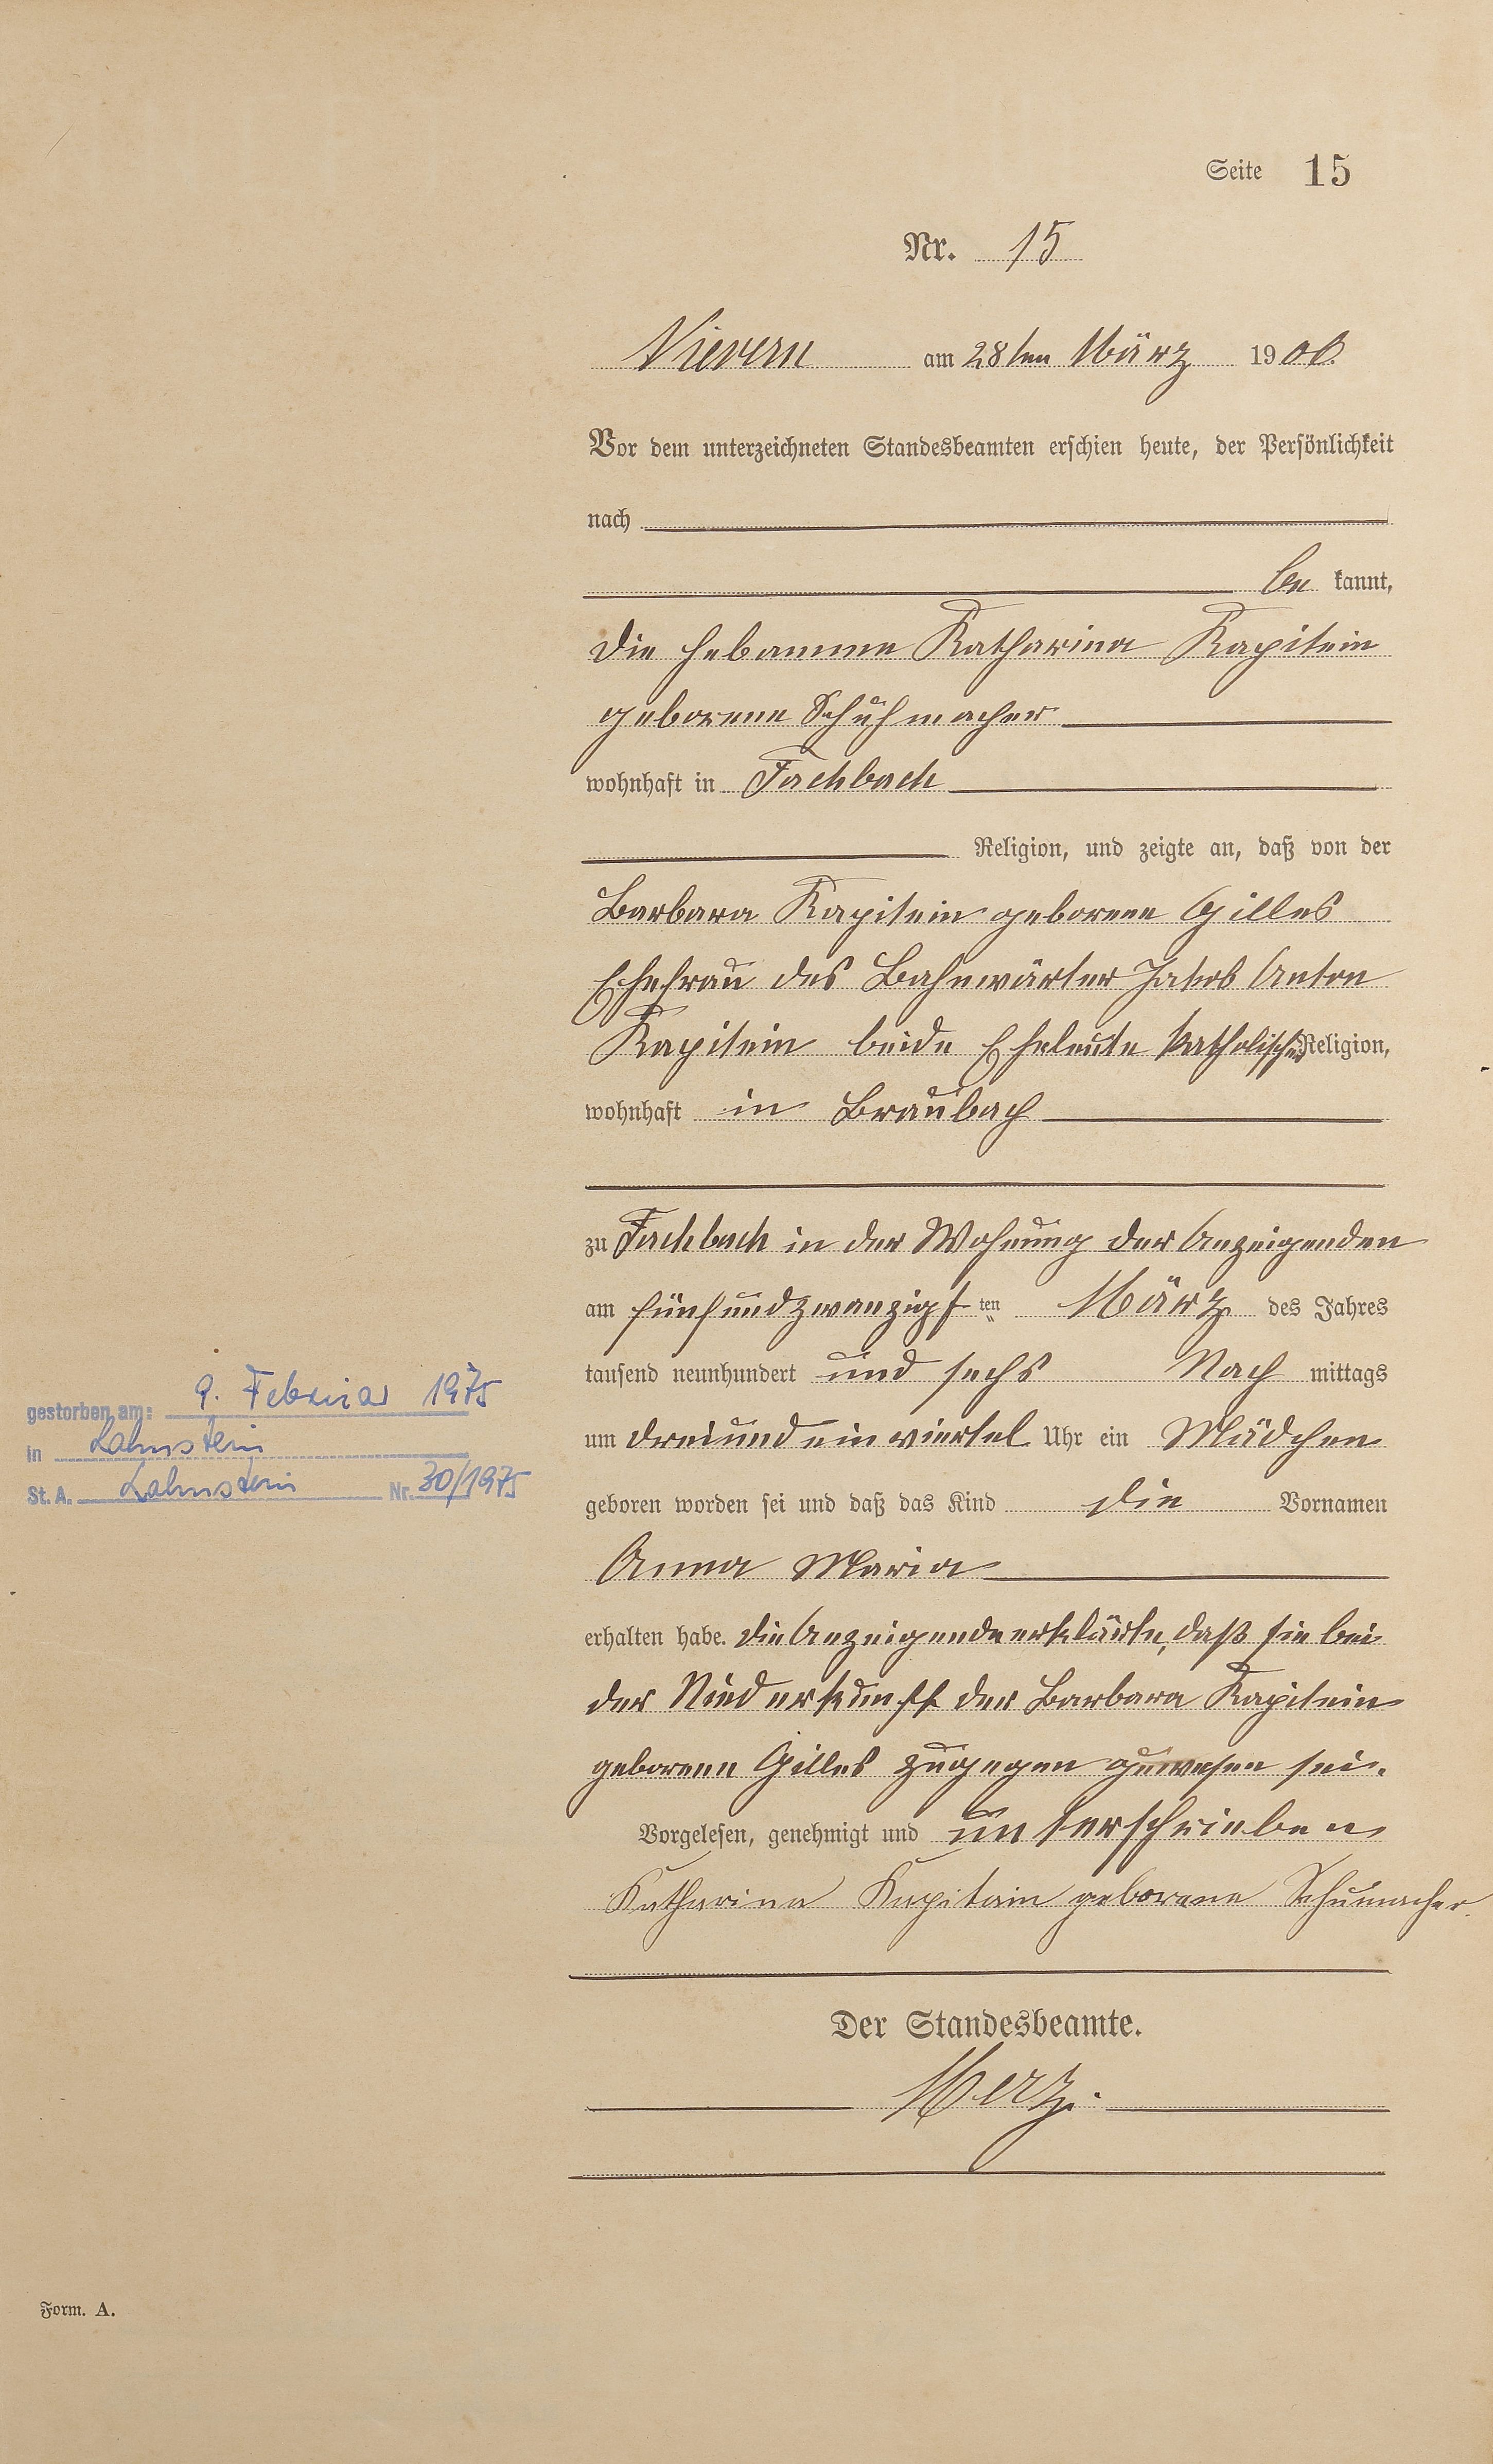 Seite 15
Nr. 15
Nievern am 28ten März 1906.
Vor dem unterzeichneten Standesbeamten erschien heute, der Persönlichkeit
nach
be kannt,
die Hebamme Katharina Kapitein
geborene Schuhmacher
wohnhaft in Fachbach
Religion, und zeigte an, daß von der
Barbara Kapitein geborene Gilles
Ehefrau des Bahnwärter Jakob Anton
Kapitein beide Eheleute katholischer Religion,
wohnhaft in Braubach
zu Fachbach in der Wohnung der Anzeigenden
am fünfundzwanzigsten März des Jahres
tausend neunhundert und sechs Nach mittags
um drei und ein viertel Uhr ein Mädchen
geboren worden sei und daß das Kind die Vornamen
Anna Maria
erhalten habe. Die Anzeigende erklärte, daß sie bei
der Niederkunft der Barbara Kapitein
geborene Gilles zugegen gewesen sei.
Vorgelesen, genehmigt und unterschrieben
Katharina Kapitain geborene Schumacher.
Der Standesbeamte.
Merz.
gestorben am: 9. Februar 1975
in Lahnstein
St. A. Lahnstein Nr. 30/1975
Form. A.